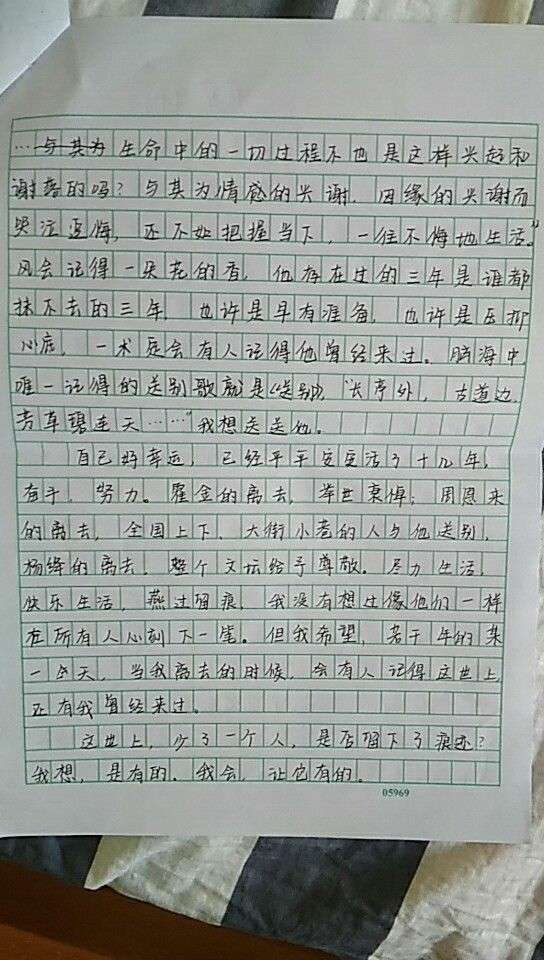 …与其为生命中的一切过程不也是这样兴起和
谢落的吗？与其为情感的兴谢，因缘的兴谢而
哭泣追悔，还不如把握当下，一往不悔地生活。”
风会记得一朵花的香，他存在过的三年是谁都
抹不去的三年，也许是早有准备，也许是压抑
心底，一术定会有人记得他曾经来过。脑海中
唯一记得的送别歌就是《送别》，“长亭外，古道边，
芳草碧连天……”我想送送他。
自己好幸运，已经平平安安活了十几年，
有手，努力。霍金的离去，举世哀悼；周恩来
的离去，全国上下，大街小巷的人与他送别，
杨绛的离去，整个文坛给予尊敬。尽力生活，
快乐生活，燕过留痕，我没有想过像他们一样
在所有人心刻下一笔。但我希望，若干年的某
一天，当我离去的时候，会有人记得这世上
正有我曾经来过。
这世上，少了一个人，是否留下了痕迹？
我想，是有的。我会，让它有的。
05969